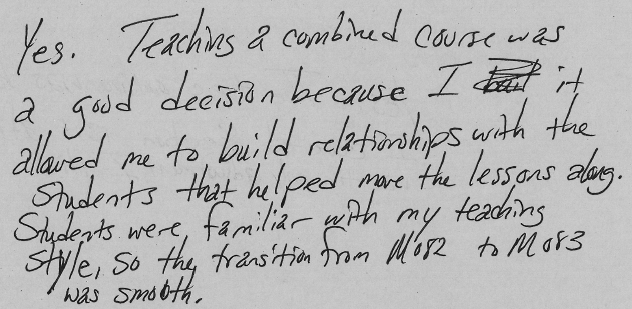 Yes. Teaching a combined course was
a good decision because I it
allowed me to build relationships with the
students that helped move the lessons along.
Students were familiar with my teaching
style, so the transition from M082 to M083
was smooth.